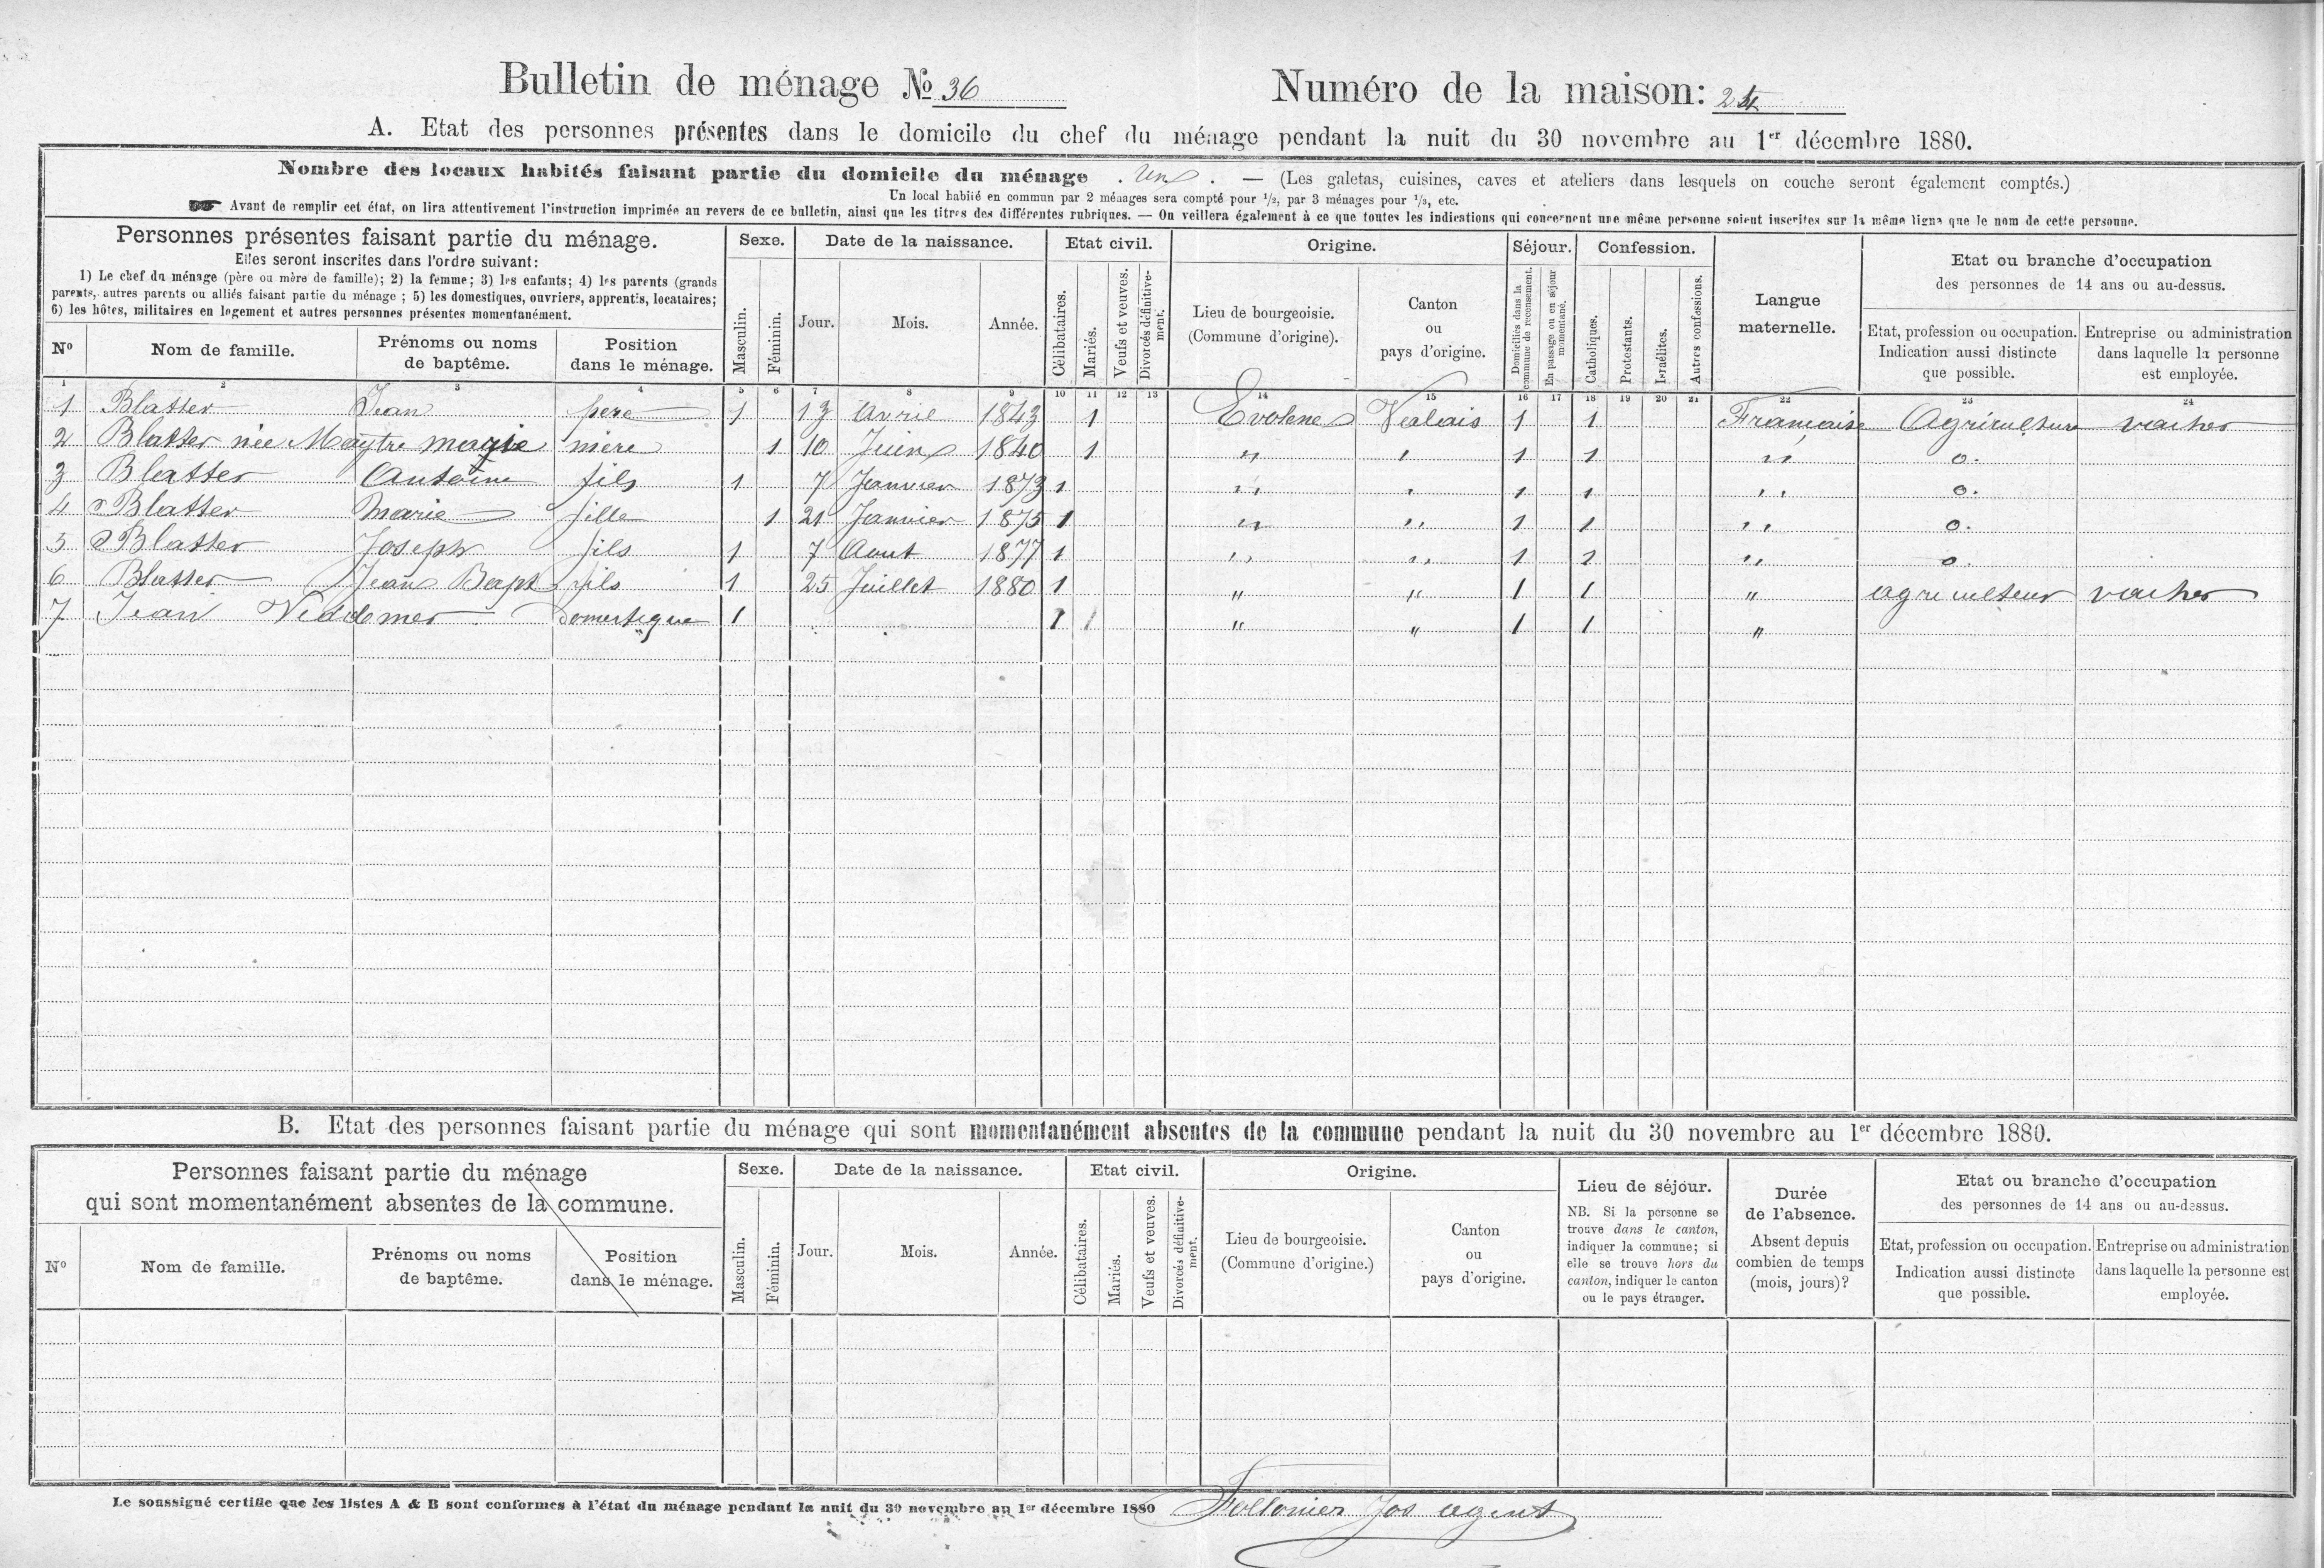 Bulletin de ménage № 36
Numéro de la maison:
A. Etat des personnes présentes dans le domicile du chef du ménage pendant la nuit du 30 novembre au 1er décembre 1880.
Nombre des locaux habités faisant partie du domicile du ménage . un . — (Les galetas, cuisines, caves et ateliers dans lesquels on couche seront également comptés.)
Un local habité en commun par 2 ménages sera compté pour 1/2, par 3 ménages pour 1/3, etc.
Avant de remplir cet état, on lira attentivement l'instruction imprimée au revers de ce bulletin, ainsi que les titres des différentes rubriques. — On veillera également à ce que toutes les indications qui concernent une même personne soient inscrites sur la même ligne que le nom de cette personne.
Personnes présentes faisant partie du ménage.
Elles seront inscrites dans l'ordre suivant:
1) Le chef du ménage (père ou mère de famille); 2) la femme; 3) les enfants; 4) les parents (grands
parents, autres parents ou alliés faisant partie du ménage ; 5) les domestiques, ouvriers, apprentis, locataires;
6) les hôtes, militaires en logement et autres personnes présentes momentanément.
Nº
Nom de famille.
Prénoms ou noms
de baptême.
Position
dans le ménage.
Sexe.
Masculin.
Féminin.
Date de la naissance.
Jour.
Mois.
Année.
Etat civil.
Célibataires.
Mariés.
Veufs et veuves.
Divorcés définitive-
ment.
Origine.
Lieu de bourgeoisie.
(Commune d'origine).
Canton
ou
pays d'origine.
Séjour.
Domiciliés dans la
commune de recensement.
En passage ou en séjour
momentané.
Confession.
Catholiques.
Protestants.
Israélites.
Autres confessions.
Langue
maternelle.
Etat ou branche d'occupation
des personnes de 14 ans ou au-dessus.
Etat, profession ou occupation.
Indication aussi distincte
que possible.
Entreprise ou administration
dans laquelle la personne
est employée.
1 2 3 4 5 6 7 8 9 10 11 12 13 14 15 16 17 18 19 20 21 22 23 24
1 Blatter Jean père 1 13 Avril 1843 1 Evolène Valais 1 1 Française Agriculteur vacher
2 Blatter née Maytre marie mère 1 10 Juin 1840 1 " " 1 1 " o.
3 Blatter Antoine fils 1 7 Janvier 1873 1 " " 1 1 " o.
4 Blatter Marie fille 1 21 Janvier 1875 1 " " 1 1 " o.
5 Blatter Joseph fils 1 7 Aout 1877 1 " " 1 1 " o.
6 Blatter Jean Bapt fils 1 25 Juillet 1880 1 " " 1 1 " agriculteur vacher
7 Jean domestique 1 1 1 " " 1 1 "
B. Etat des personnes faisant partie du ménage qui sont momentanément absentes de la commune pendant la nuit du 30 novembre au 1er décembre 1880.
Personnes faisant partie du ménage
qui sont momentanément absentes de la commune.
Nº
Nom de famille.
Prénoms ou noms
de baptême.
Position
dans le ménage.
Sexe.
Masculin.
Féminin.
Date de la naissance.
Jour.
Mois.
Année.
Etat civil.
Célibataires.
Mariés.
Veufs et veuves.
Divorcés définitive-
ment.
Origine.
Lieu de bourgeoisie.
(Commune d'origine.)
Canton
ou
pays d'origine.
Lieu de séjour.
NB. Si la personne se
trouve dans le canton,
indiquer la commune; si
elle se trouve hors du
canton, indiquer le canton
ou le pays étranger.
Durée
de l'absence.
Absent depuis
combien de temps
(mois, jours)?
Etat ou branche d'occupation
des personnes de 14 ans ou au-dessus.
Etat, profession ou occupation.
Indication aussi distincte
que possible.
Entreprise ou administration
dans laquelle la personne est
employée.
Le soussigné certifie que les listes A & B sont conformes à l'état du ménage pendant la nuit du 30 novembre au 1er décembre 1880 Follonier Jos agent